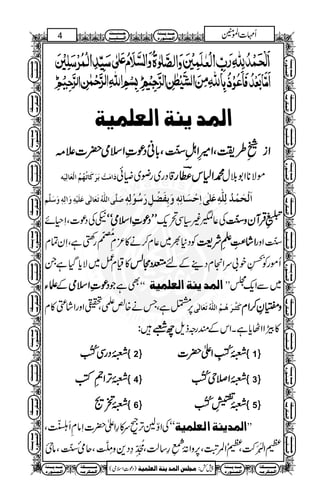 اُمہات المؤمنین
4
اَلْحَمْدُ لِلّٰهِ رَبِّ الْعٰلَمِیْنَ وَالصَّلٰوةُ وَالسَّلَامُ عَلٰی سَیِّدِ الْمُرْسَلِیْنَ
اَمَّا بَعْدُ فَاَعُوْذُ بِاللّٰهِ مِنَ الشَّیْطٰنِ الرَّجِیْمِ ؕ بِسْمِ اللّٰهِ الرَّحْمٰنِ الرَّحِیْمِ ؕ
المدینة العلمیة
از شیخِ طریقت، امیرِ اہلِ سنّت، بانیٔ دعوتِ اسلامی حضرت علامہ
مولانا ابو بلال محمد الیاس عطار قادری رضوی ضیائی دَامَتْ بَرَكَاتُهُمُ الْعَالِيَه
اَلْحَمْدُ لِلّٰهِ عَلٰی اِحْسَانِهٖ وَ بِفَضْلِ رَسُوْلِهٖ صَلَّى اللّٰهُ تَعَالٰى عَلَيْهِ وَاٰلِهٖ وَسَلَّم
تبلیغِ قرآن و سنّت کی عالمگیر غیر سیاسی تحریک ”دعوتِ اسلامی“ نیکی کی دعوت، احیائے
سنّت اور اشاعتِ علمِ شریعت کو دنیا بھر میں عام کرنے کا عزمِ مُصمّم رکھتی ہے، اِن تمام
اُمور کو بحسنِ خوبی سر انجام دینے کے لئے متعدد مجالس کا قیام عمل میں لایا گیا ہے جن
میں سے ایک مجلس ”المدینة العلمیة“ بھی ہے جو دعوتِ اسلامی کے عُلماء
و مفتیانِ کرام كَثَّرَهُمُ اللّٰهُ تَعَالٰى پر مشتمل ہے، جس نے خالص علمی، تحقیقی اور اشاعتی کام
کا بیڑا اٹھایا ہے۔ اس کے مندرجہ ذیل چھ شعبے ہیں:
{1} شعبۂ کتبِ اعلیٰ حضرت {2} شعبۂ درسی کُتُب
{3} شعبۂ اصلاحی کُتُب {4} شعبۂ تراجمِ کتب
{5} شعبۂ تفتیشِ کُتُب {6} شعبۂ تخریج
”المدینة العلمیة“ کی اوّلین ترجیح سرکارِ اعلیٰ حضرت اِمامِ اَہلسنّت،
عظیم البَرَکت، عظیمُ المرتبت، پروانۂ شمعِ رسالت، مُجدِّدِ دین و ملّت، حامیٔ سنّت، ماحیٔ
پیش کش: مجلس المدینة العلمیة (دعوتِ اسلامی)